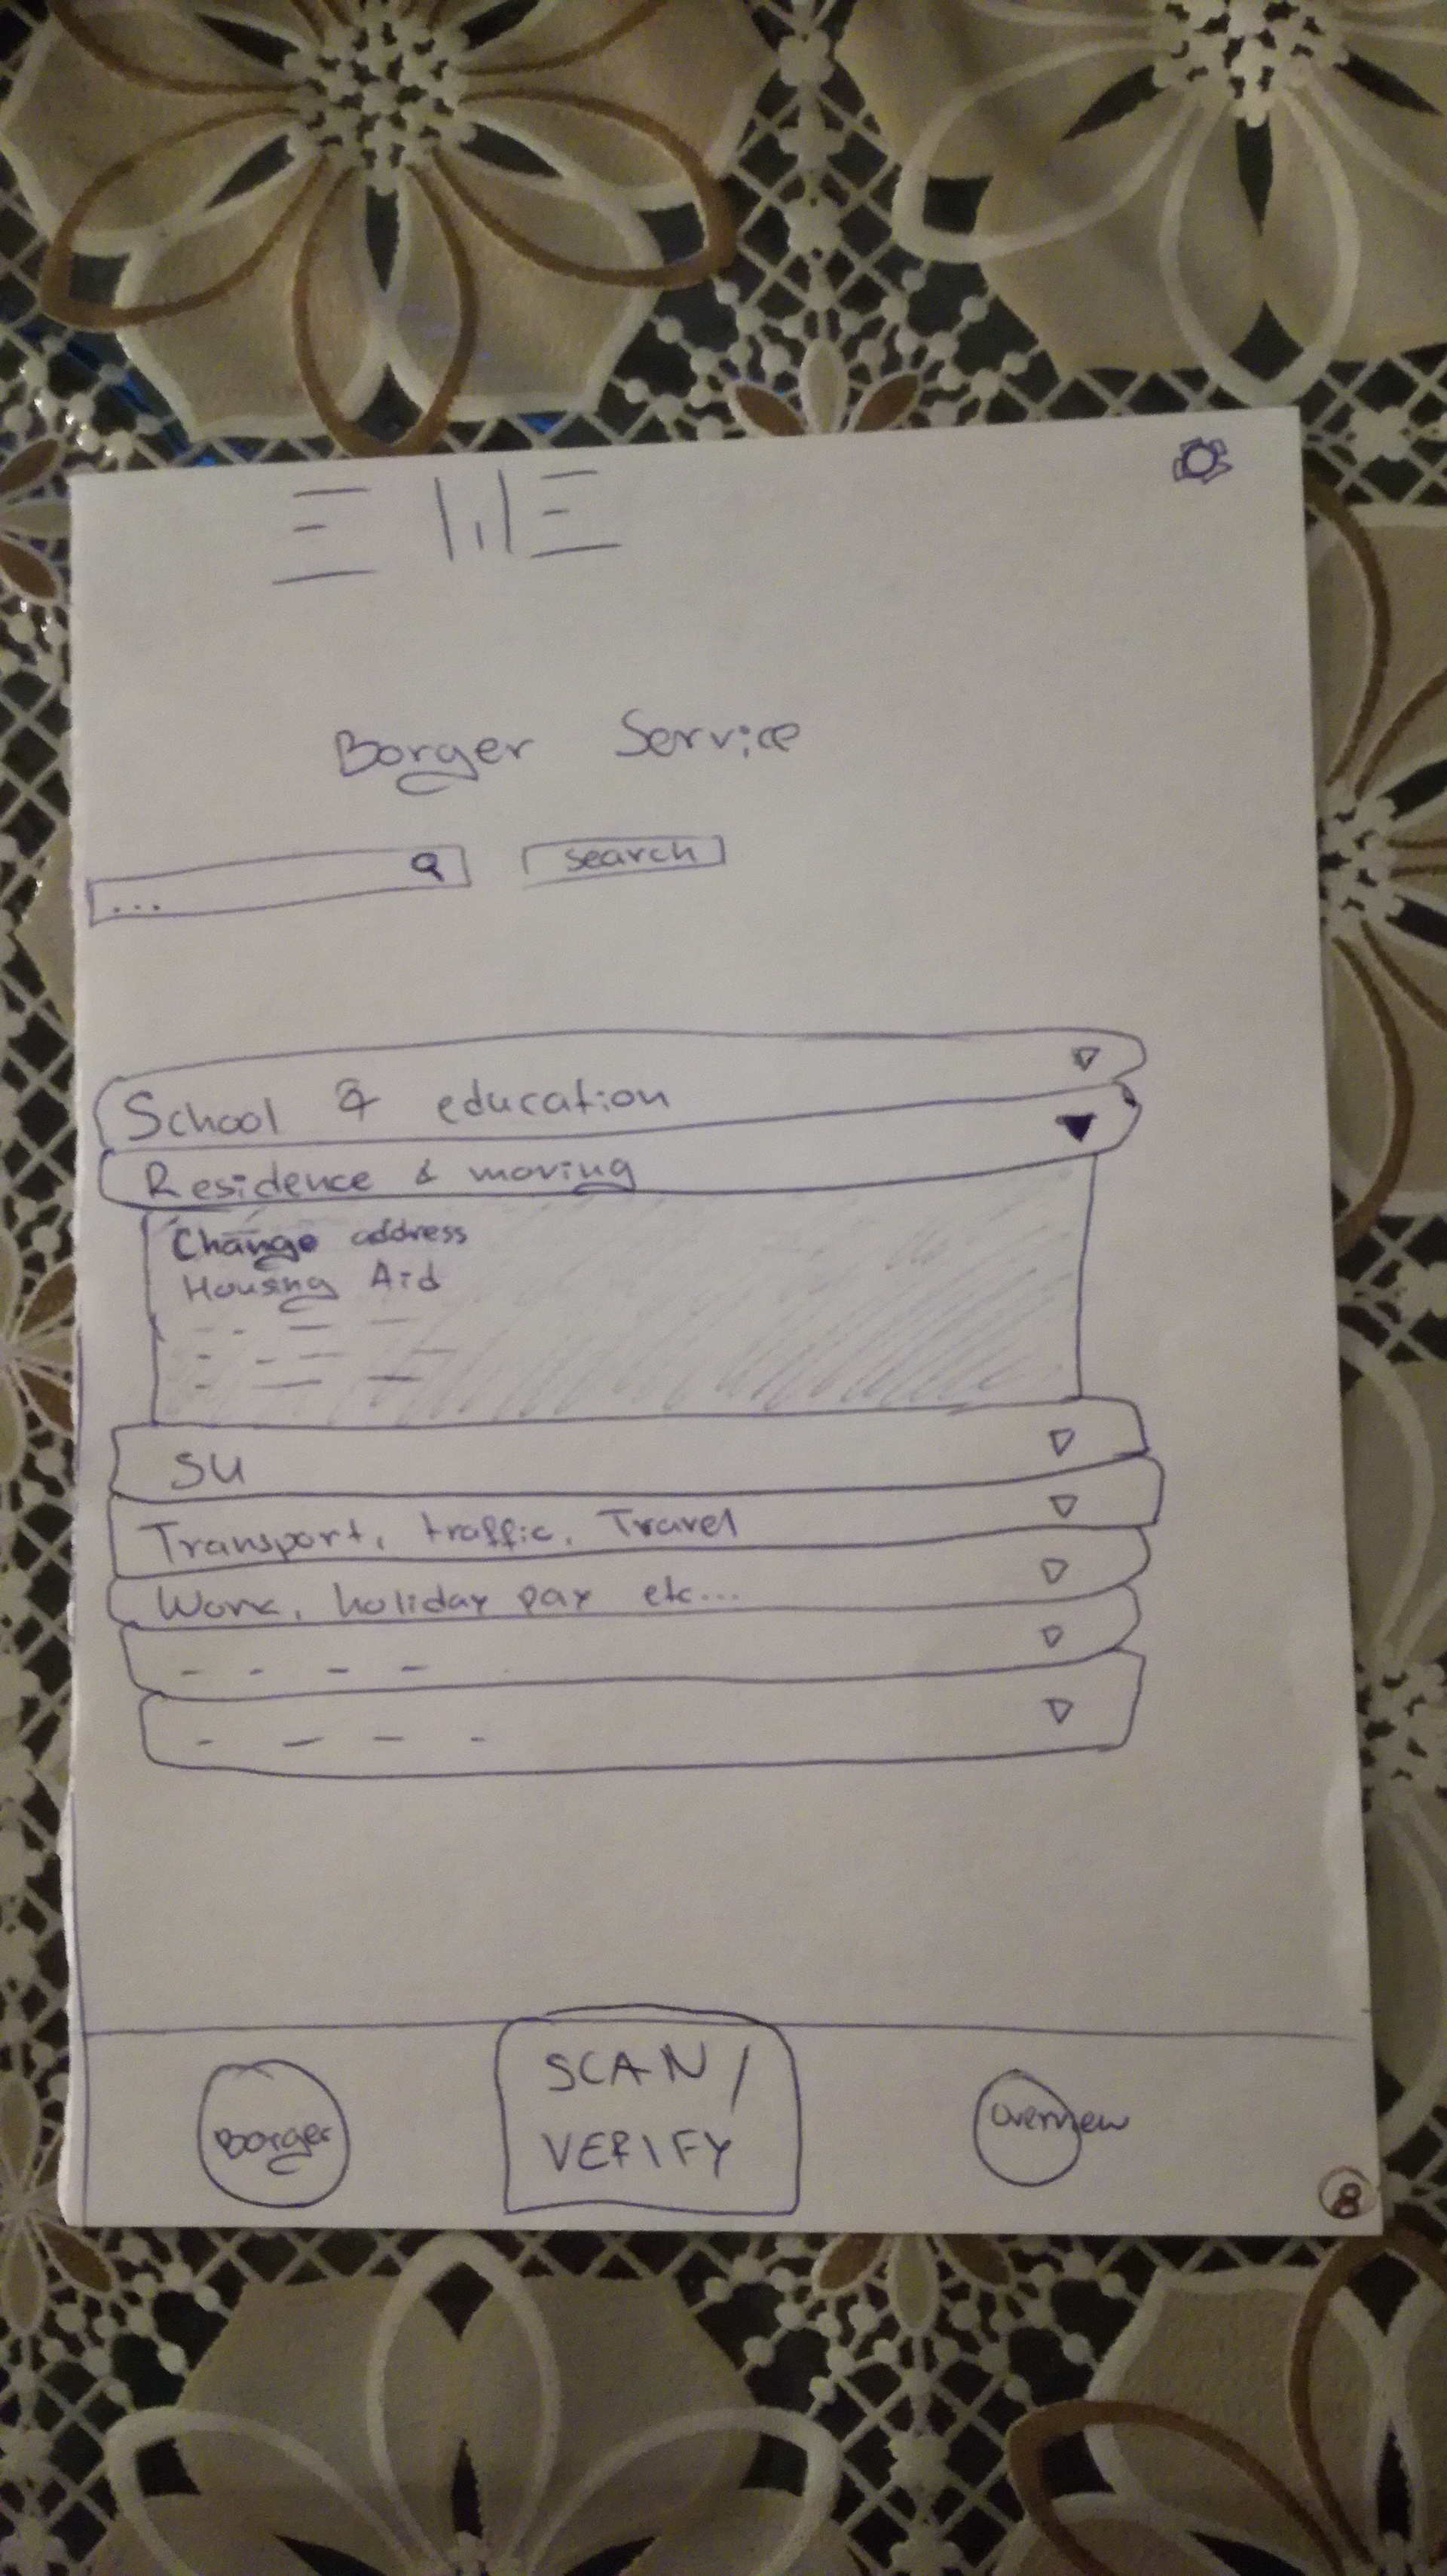 Borger Service
... search
School & education
Residence & moving
Change address
Housing Aid
SU
Transport, traffic, Travel
Work, holiday pay etc...
Borger
SCAN /
VERIFY
Overview
8